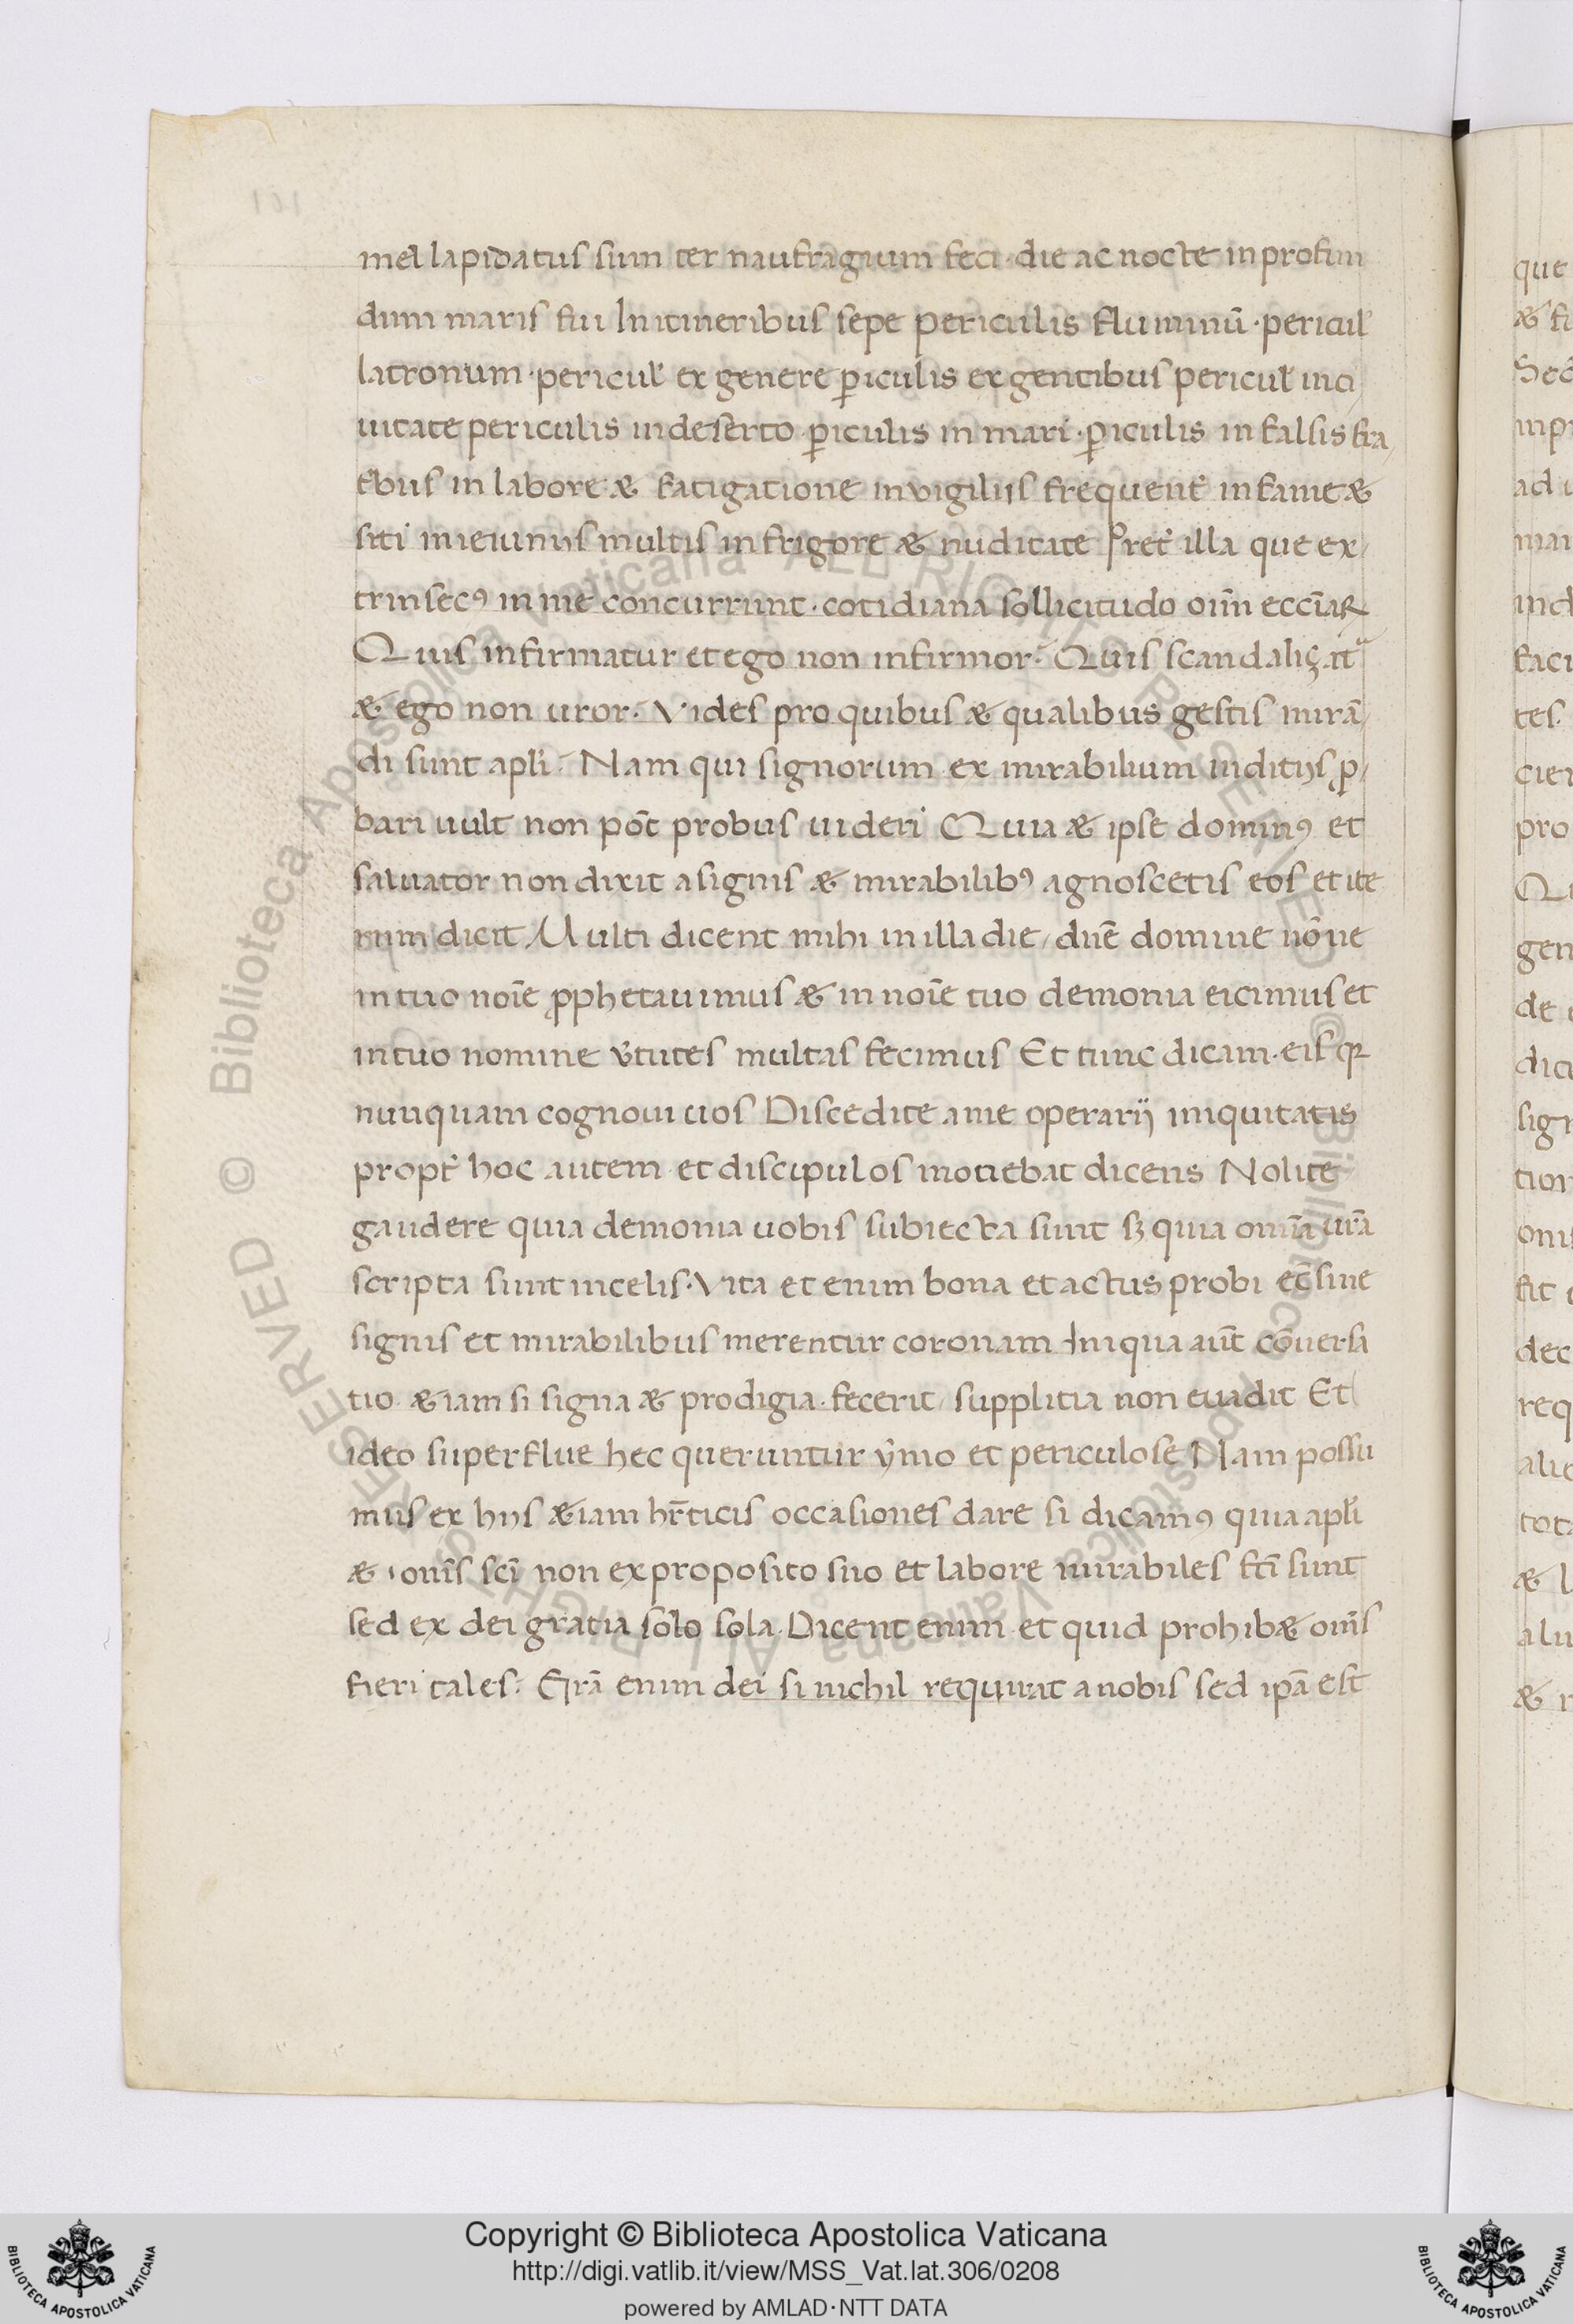 mel lapidatus sum ter naufragium feci · die ac nocte in profun
dum maris fui In itineribus sepe periculis fluminū · pericul̄
latronum · pericul̄ ex genere ꝑiculis ex gentibus pericul̄ in ci
uitate periculis in deserto ꝑiculis in mari · ꝑiculis in falsis fra
t̄bus in labore & fatigatione in vigiliis frequent̄ in fame &
siti in ieiuniis multis in frigore & nuditate Pret̄ illa que ex
trinsecꝰ in me concurrunt · cotidiana sollicitudo oīm eccīaꝝ
Quis infirmatur et ego non infirmor · Quis scandaliçat᷑
& ego non uror · Vides pro quibus & qualibus gestis mirā
di sunt apl̄i · Nam qui signorum ex mirabilium inditijs ꝓ
bari uult non pōt probus uideri Quia & ipse dominꝰ et
saluator non dixit a signis & mirabilibꝰ agnoscetis eos et ite
rum dicit Multi dicent mihi in illa die / dn̄e domine nōne
in tuo noīe ꝓphetauimus & in noīe tuo demonia eicimus et
in tuo nomine v̄tutes multas fecimus Et tunc dicam · eis qꝛ
nunquam cognoui uos Discedite a me operarij iniquitatis
propt̄ hoc autem et discipulos monebat dicens Nolite
gaudere quia demonia uobis subiecta sunt sꝫ quia omīa ur̄a
scripta sunt in celis · Vita et enim bona et actus probi ec̄ sine
signis et mirabilibus merentur coronam Iniqua aūt cōuersa
tio &iam si signa & prodigia · fecerit / supplitia non euadit Et
ideo superflue hec queruntur ẏmo et periculose Nam possu
mus ex hijs &iam hr̄ticis occasiones dare si dicamꝰ quia apl̄i
& om̄s sc̄i non ex proposito suo et labore mirabiles fc̄i sunt
sed ex dei gratia solo sola · Dicent enim et quid prohib& om̄s
fieri tales · Gr̄a enim dei si nichil requirat a nobis sed ip̄a est
que
& fu
Sed
inp
ad u
man
ind
faci
tes.
cien
pro
Qu
gen
de
dici
sign
tion
onis
fit
dec
req
alic
tota
& l
aliu
& n
Copyright © Biblioteca Apostolica Vaticana
http://digi.vatlib.it/view/MSS_Vat.lat.306/0208
powered by AMLAD·NTT DATA